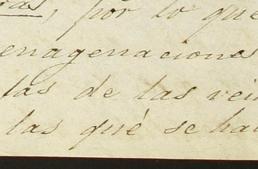 ras, por lo que
enagenaciones
las de las vein
las qué se hal